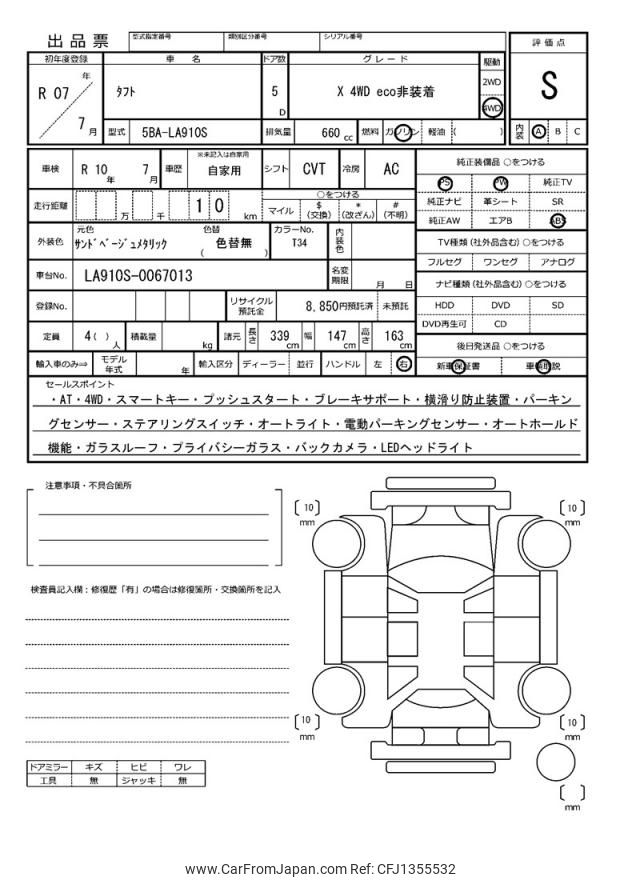 出品票 型式指定番号 類別区分番号 シリアル番号
評価点
S
内装 A B C
初年度登録 車名 ドア数 グレード 駆動
R 07 年 7 月
ﾀﾌﾄ 5 D X 4WD eco非装着 2WD 4WD
型式 5BA-LA910S 排気量 660 cc 燃料 ガソリン 軽油 ( )
車検 R 10 年 7 月 車歴 ※未記入は自家用 自家用 シフト CVT 冷房 AC
走行距離 万 千 1 0 km ○をつける
マイル $(交換) *(改ざん) #(不明)
外装色 元色 ｻﾝﾄﾞﾍﾞｰｼﾞｭﾒﾀﾘｯｸ 色替 ( 色替無 ) カラーNo. T34 内装色
車台No. LA910S-0067013 名変期限 月 日
登録No. リサイクル預託金 8,850円預託済 未預託
定員 4( )人 積載量 kg 諸元 長さ 339 cm 幅 147 cm 高さ 163 cm
輸入車のみ⇒ モデル年式 年 輸入区分 ディーラー 並行 ハンドル 左 右
純正装備品 ○をつける
PS PW 純正TV
純正ナビ 革シート SR
純正AW エアB ABS
TV種類 (社外品含む) ○をつける
フルセグ ワンセグ アナログ
ナビ種類 (社外品含む) ○をつける
HDD DVD SD
DVD再生可 CD
後日発送品 ○をつける
新車保証書 車輌取説
セールスポイント
・AT・4WD・スマートキー・プッシュスタート・ブレーキサポート・横滑り防止装置・パーキン
グセンサー・ステアリングスイッチ・オートライト・電動パーキングセンサー・オートホールド
機能・ガラスルーフ・プライバシーガラス・バックカメラ・LEDヘッドライト
注意事項・不具合箇所
検査員記入欄：修復歴「有」の場合は修復箇所・交換箇所を記入
ドアミラー キズ ヒビ ワレ
工具 無 ジャッキ 無
[ 10 ] mm
[ 10 ] mm
[ 10 ] mm
[ 10 ] mm
[ ] mm
www.CarFromJapan.com Ref: CFJ1355532